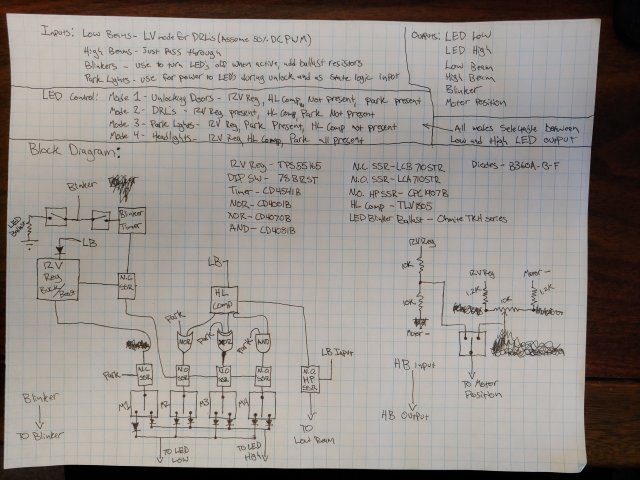 Inputs: Low Beams - LV mode for DRL's (Assume 50% DC PWM)
High Beams - Just Pass through
Blinkers - use to turn LED's off when active, add ballast resistors
Park Lights - use for power to LED's during unlock and as state logic input
Outputs: LED Low
LED High
Low Beam
High Beam
Blinker
Motor Position
LED Control: Mode 1 - Unlocking Doors - 12V Reg, HL Comp, Not present, Park present
Mode 2 - DRL's - 12V Reg present, HL Comp, Park Not present
Mode 3 - Park Lights - 12V Reg, Park Present, HL Comp not present
Mode 4 - Headlights - 12V Reg HL Comp, Park all present
All modes Selectable between
Low and High LED output
Block Diagram:
12V Reg - TPS55165
DIP SW - 78B1RST
Timer - CD4541B
NOR - CD4001B
XOR - CD4070B
AND - CD4081B
N.C. SSR - LCB710STR
N.O. SSR - LCA710STR
N.O. HP SSR - CPC1907B
HL Comp - TLV1805
LED Blinker Ballast - Ohmite TKH series
Diodes - B360A-13-F
Blinker
LED Ballast
Blinker Timer
LB
12V Reg Buck/Boost
N.C. SSR
LB
HL Comp
Park
NOR
Park
XOR
Park
AND
Park
N.C. SSR
N.O. SSR
N.O. SSR
N.O. SSR
N.O. HP SSR
LB Input
M1
M2
M3
M4
TO LED Low
TO LED High
TO Low Beam
Blinker
TO Blinker
12V Reg
10K
10K
Motor -
12V Reg
1.2K
10K
Motor -
1.2K
TO Motor Position
HB input
HB Output